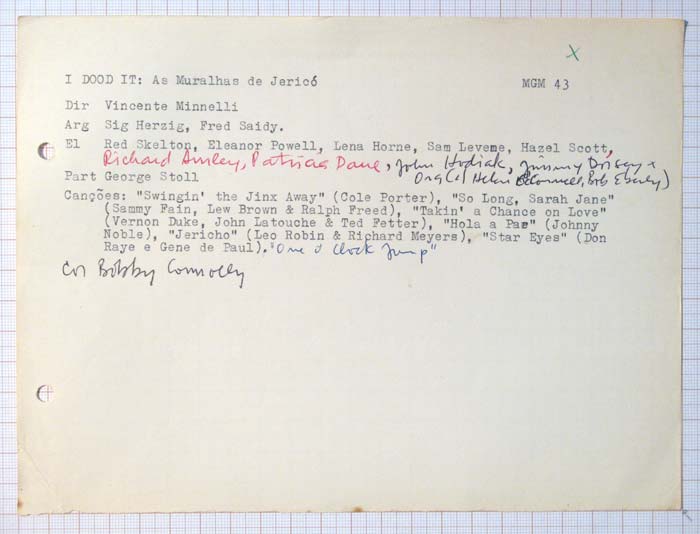 x
I DOOD IT: As Muralhas de Jericó MGM 43
Dir Vincente Minnelli
Arg Sig Herzig, Fred Saidy.
El Red Skelton, Eleanor Powell, Lena Horne, Sam Leveme, Hazel Scott,
Richard Ainley, Patricia Dane, John Hodiak, Jimmy Dorsey +
Part George Stoll Orq (c/ Helen O'Connell, Bob Eberly)
Canções: "Swingin' the Jinx Away" (Cole Porter), "So Long, Sarah Jane"
(Sammy Fain, Lew Brown & Ralph Freed), "Takin' a Chance on Love"
(Vernon Duke, John Latouche & Ted Fetter), "Hola a Pae" (Johnny
Noble), "Jericho" (Leo Robin & Richard Meyers), "Star Eyes" (Don
Raye e Gene de Paul). "One O'Clock Jump"
Cor Bobby Connolly